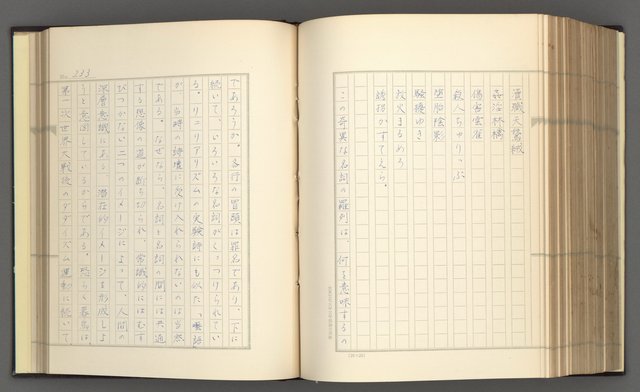 瀆職天鵞絨
姦淫林檎
傷害雲雀
殺人ちゅりっぷ
堕胎陰影
騒擾ゆき
放火まるめろ
誘拐かすてえら。
この奇異な名詞の羅列は、何を意味するの
No. 233
であろうか。各行の冒頭は罪名であり、下に
続いて、いろいろな名詞がくっつけられてい
る。シュリアリズムの実験詩にも似た「囈語」
が、当時の詩壇に受け入れられないのは当然
である。なぜなら、名詞と名詞の間には共通
する想像の道が断ち切られ、常識的にはむす
びつかない二つのイメージによって、人間の
深層意識にある、潜在的イメージを形成しよ
うと意図しているからである。恐らく暮鳥は
第一次世界大戦後のダダイズム運動に続いて
(20×20)